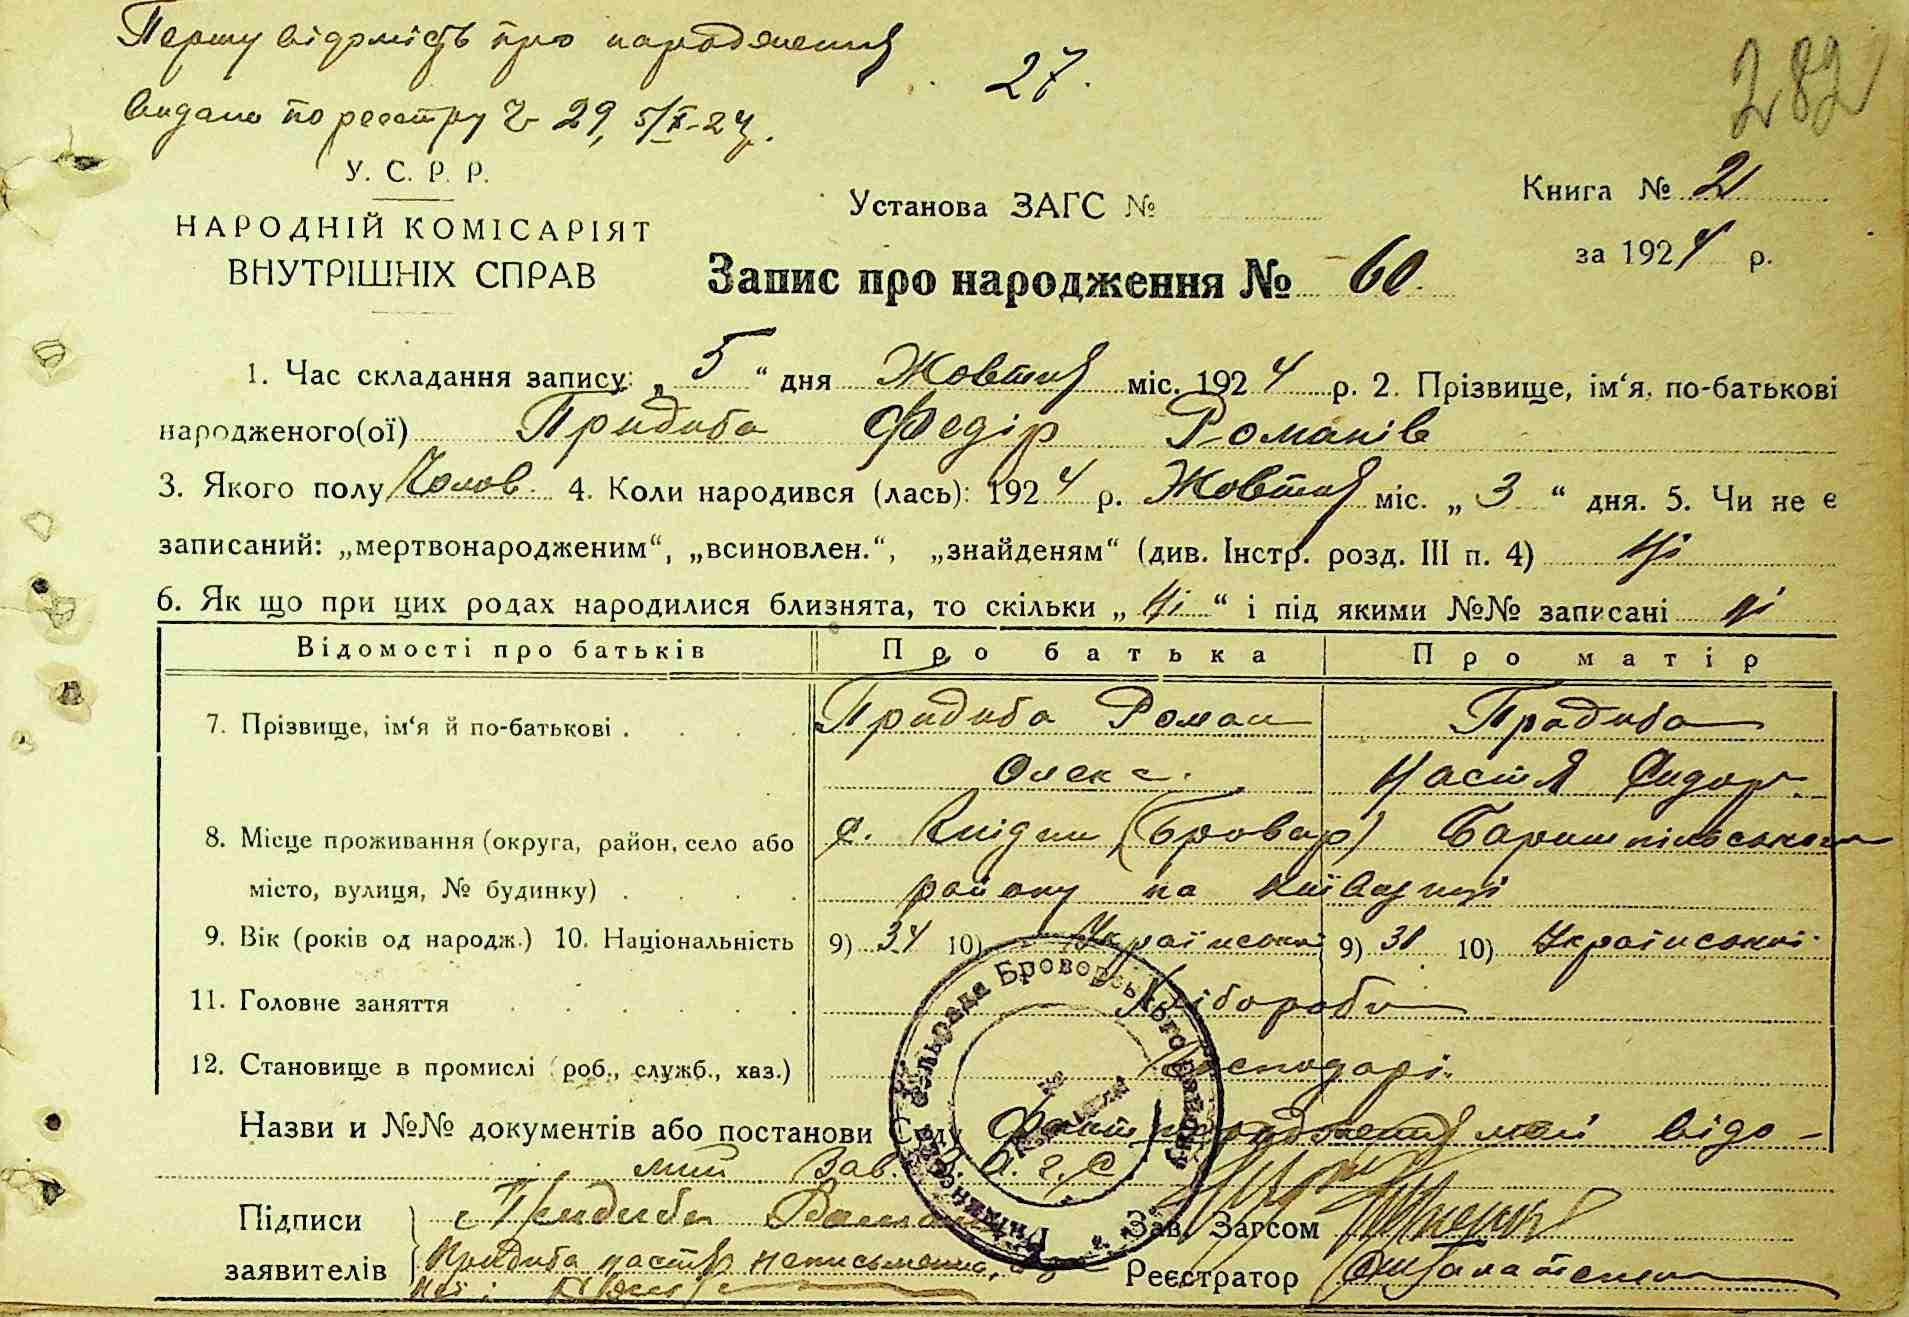 Першу відомість про народження
27.
282
видано по реєстру Ч 29, 5/X-24.
У. С. Р. Р.
НАРОДНІЙ КОМІСАРІЯТ
ВНУТРІШНІХ СПРАВ
Установа ЗАГС №
Книга № 2
за 1924 р.
Запис про народження № 60.
1. Час складання запису: „ 5 “ дня Жовтня міс. 1924 р. 2. Прізвище, ім‘я, по-батькові
народженого(ої) Придиба Федір Романів
3. Якого полу Чолов. 4. Коли народився (лась): 1924 р. Жовтня міс. „ 3 “ дня. 5. Чи не є
записаний: „мертвонародженим“, „всиновлен.“, „знайденям“ (див. Інстр. розд. III п. 4) Ні
6. Як що при цих родах народилися близнята, то скільки „ Ні “ і під якими №№ записані ні
Відомості про батьків Про батька Про матір
7. Прізвище, ім‘я й по-батькові . . . . Придиба Роман Придиба
Олекс. Настя Сидор.
8. Місце проживання (округа, район, село або с. Княжичі (Бровар) Баришпільського
місто, вулиця, № будинку) . . . . району на Київщині
9. Вік (років од народж.) 10. Національність 9) 34 10) Української 9) 31 10) Української
11. Головне заняття . . . . . . Хлібороби
12. Становище в промислі (роб., служб., хаз.) Господарі.
Назви и №№ документів або постанови Суду Факт народження мені відо-
мий Зав.
Підписи
заявителів
Придиба Роман
Придиба Настя неписьменна, а за
неї:
Зав. Загсом
Реєстратор
Сільрада Броворського